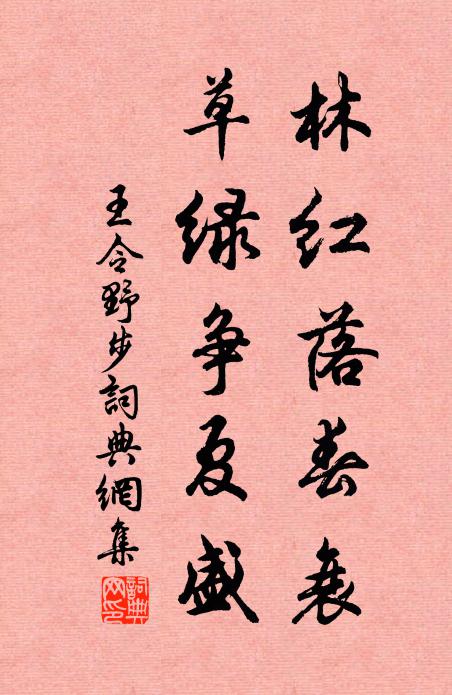 林红落春衰
草绿争夏盛
王令野步詞典網集
詞典網印